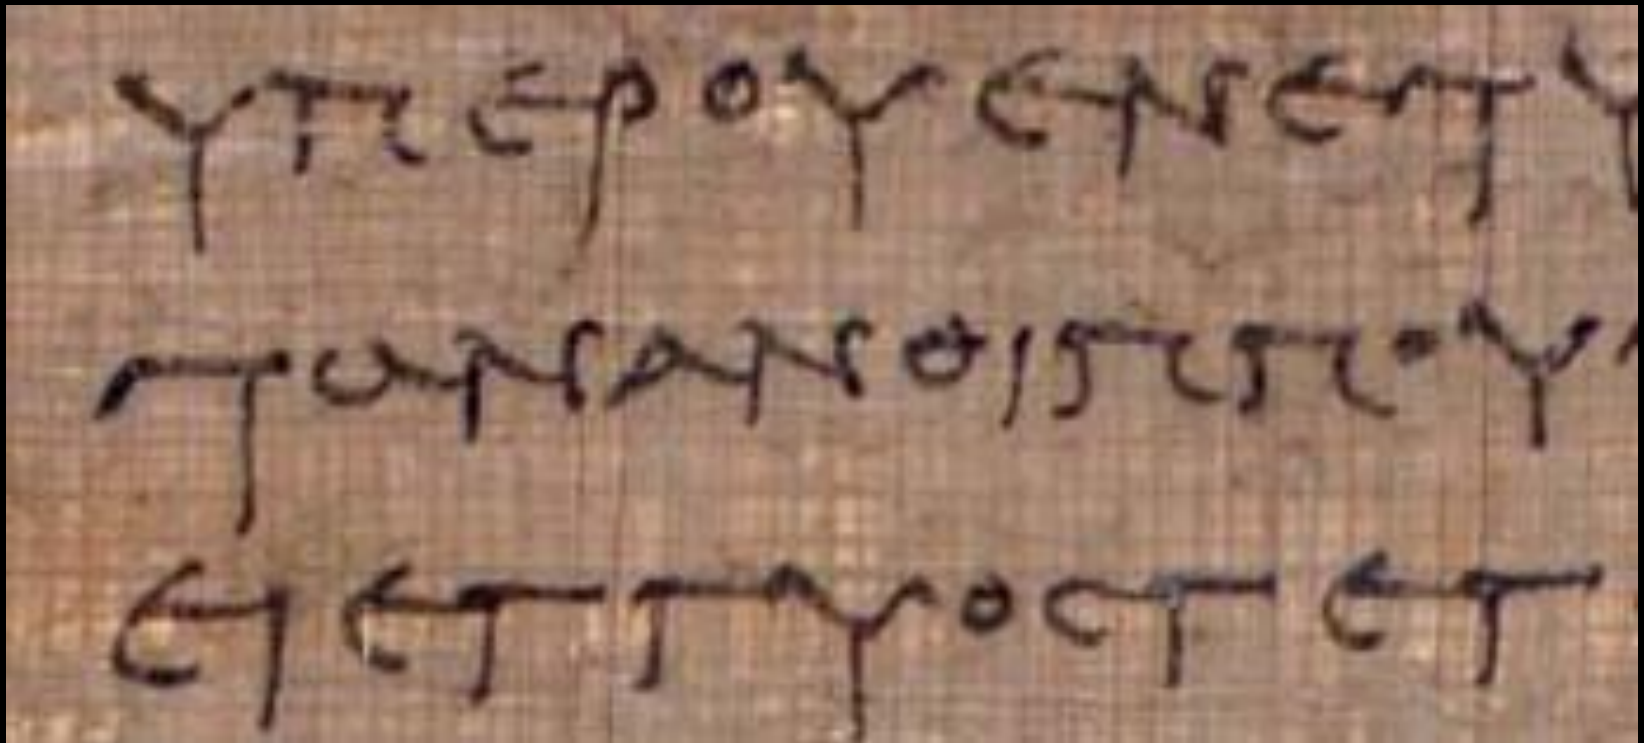 υπερουενετυ
τωνανθιππου
ειεγγυοςτετ